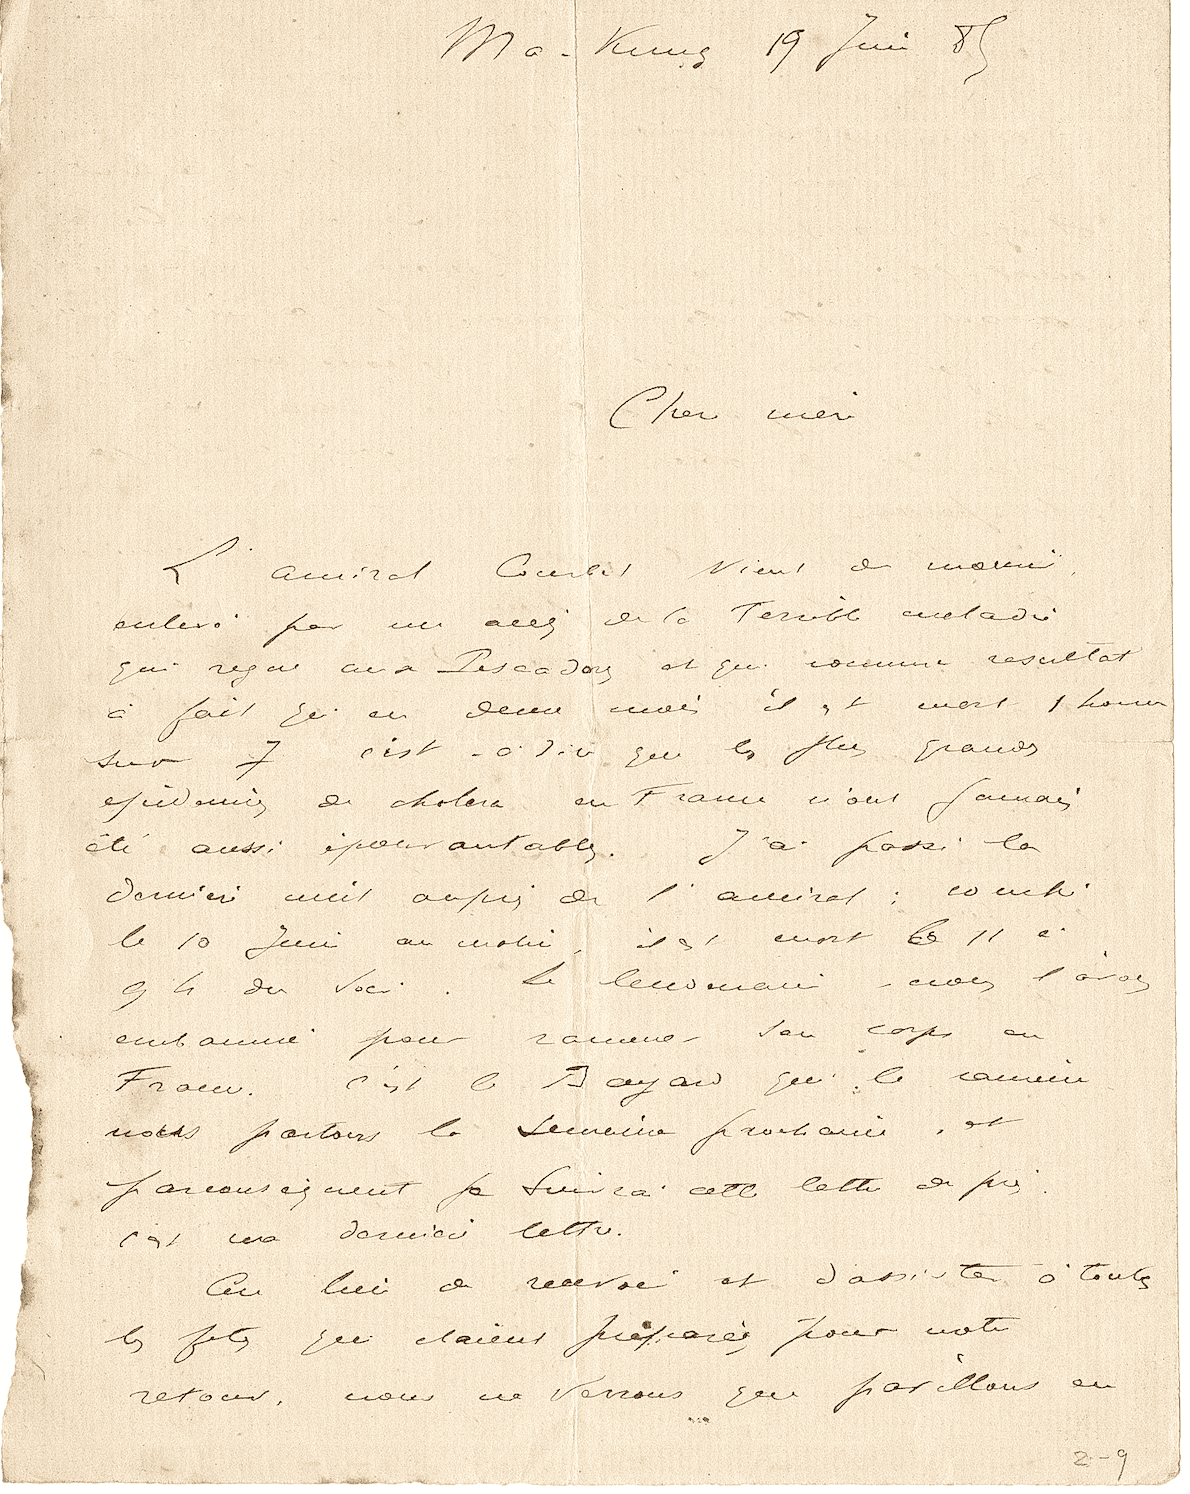 Ma-Kung 19 Juin 85
Cher mère
L'amiral Courbet vient de mourir,
enlevé par un accès de la Terrible maladie
qui regne aux Pescadores et qui comme resultat
à fait qu'en deux mois il est mort 1 homme
sur 7 c'est-à-dire que les plus grandes
epidemies de cholera en France n'ont jamais
été aussi épouvantables. J'ai passé la
dernière nuit auprès de l'amiral ; couché
le 10 Juin au matin, il est mort le 11 à
9 h du soir. Le lendemain nous l'avons
embaumé pour ramener son corps en
France. C'est le Bayard qui le ramène
nous partons la semaine prochaine, et
parconsequent je suivrai cette lettre de près.
c'est ma dernière lettre.
Au lieu de recevoir et d'assister à toutes
les fetes qui etaient préparées pour notre
retour, nous ne verrons que pavillons en
2-9